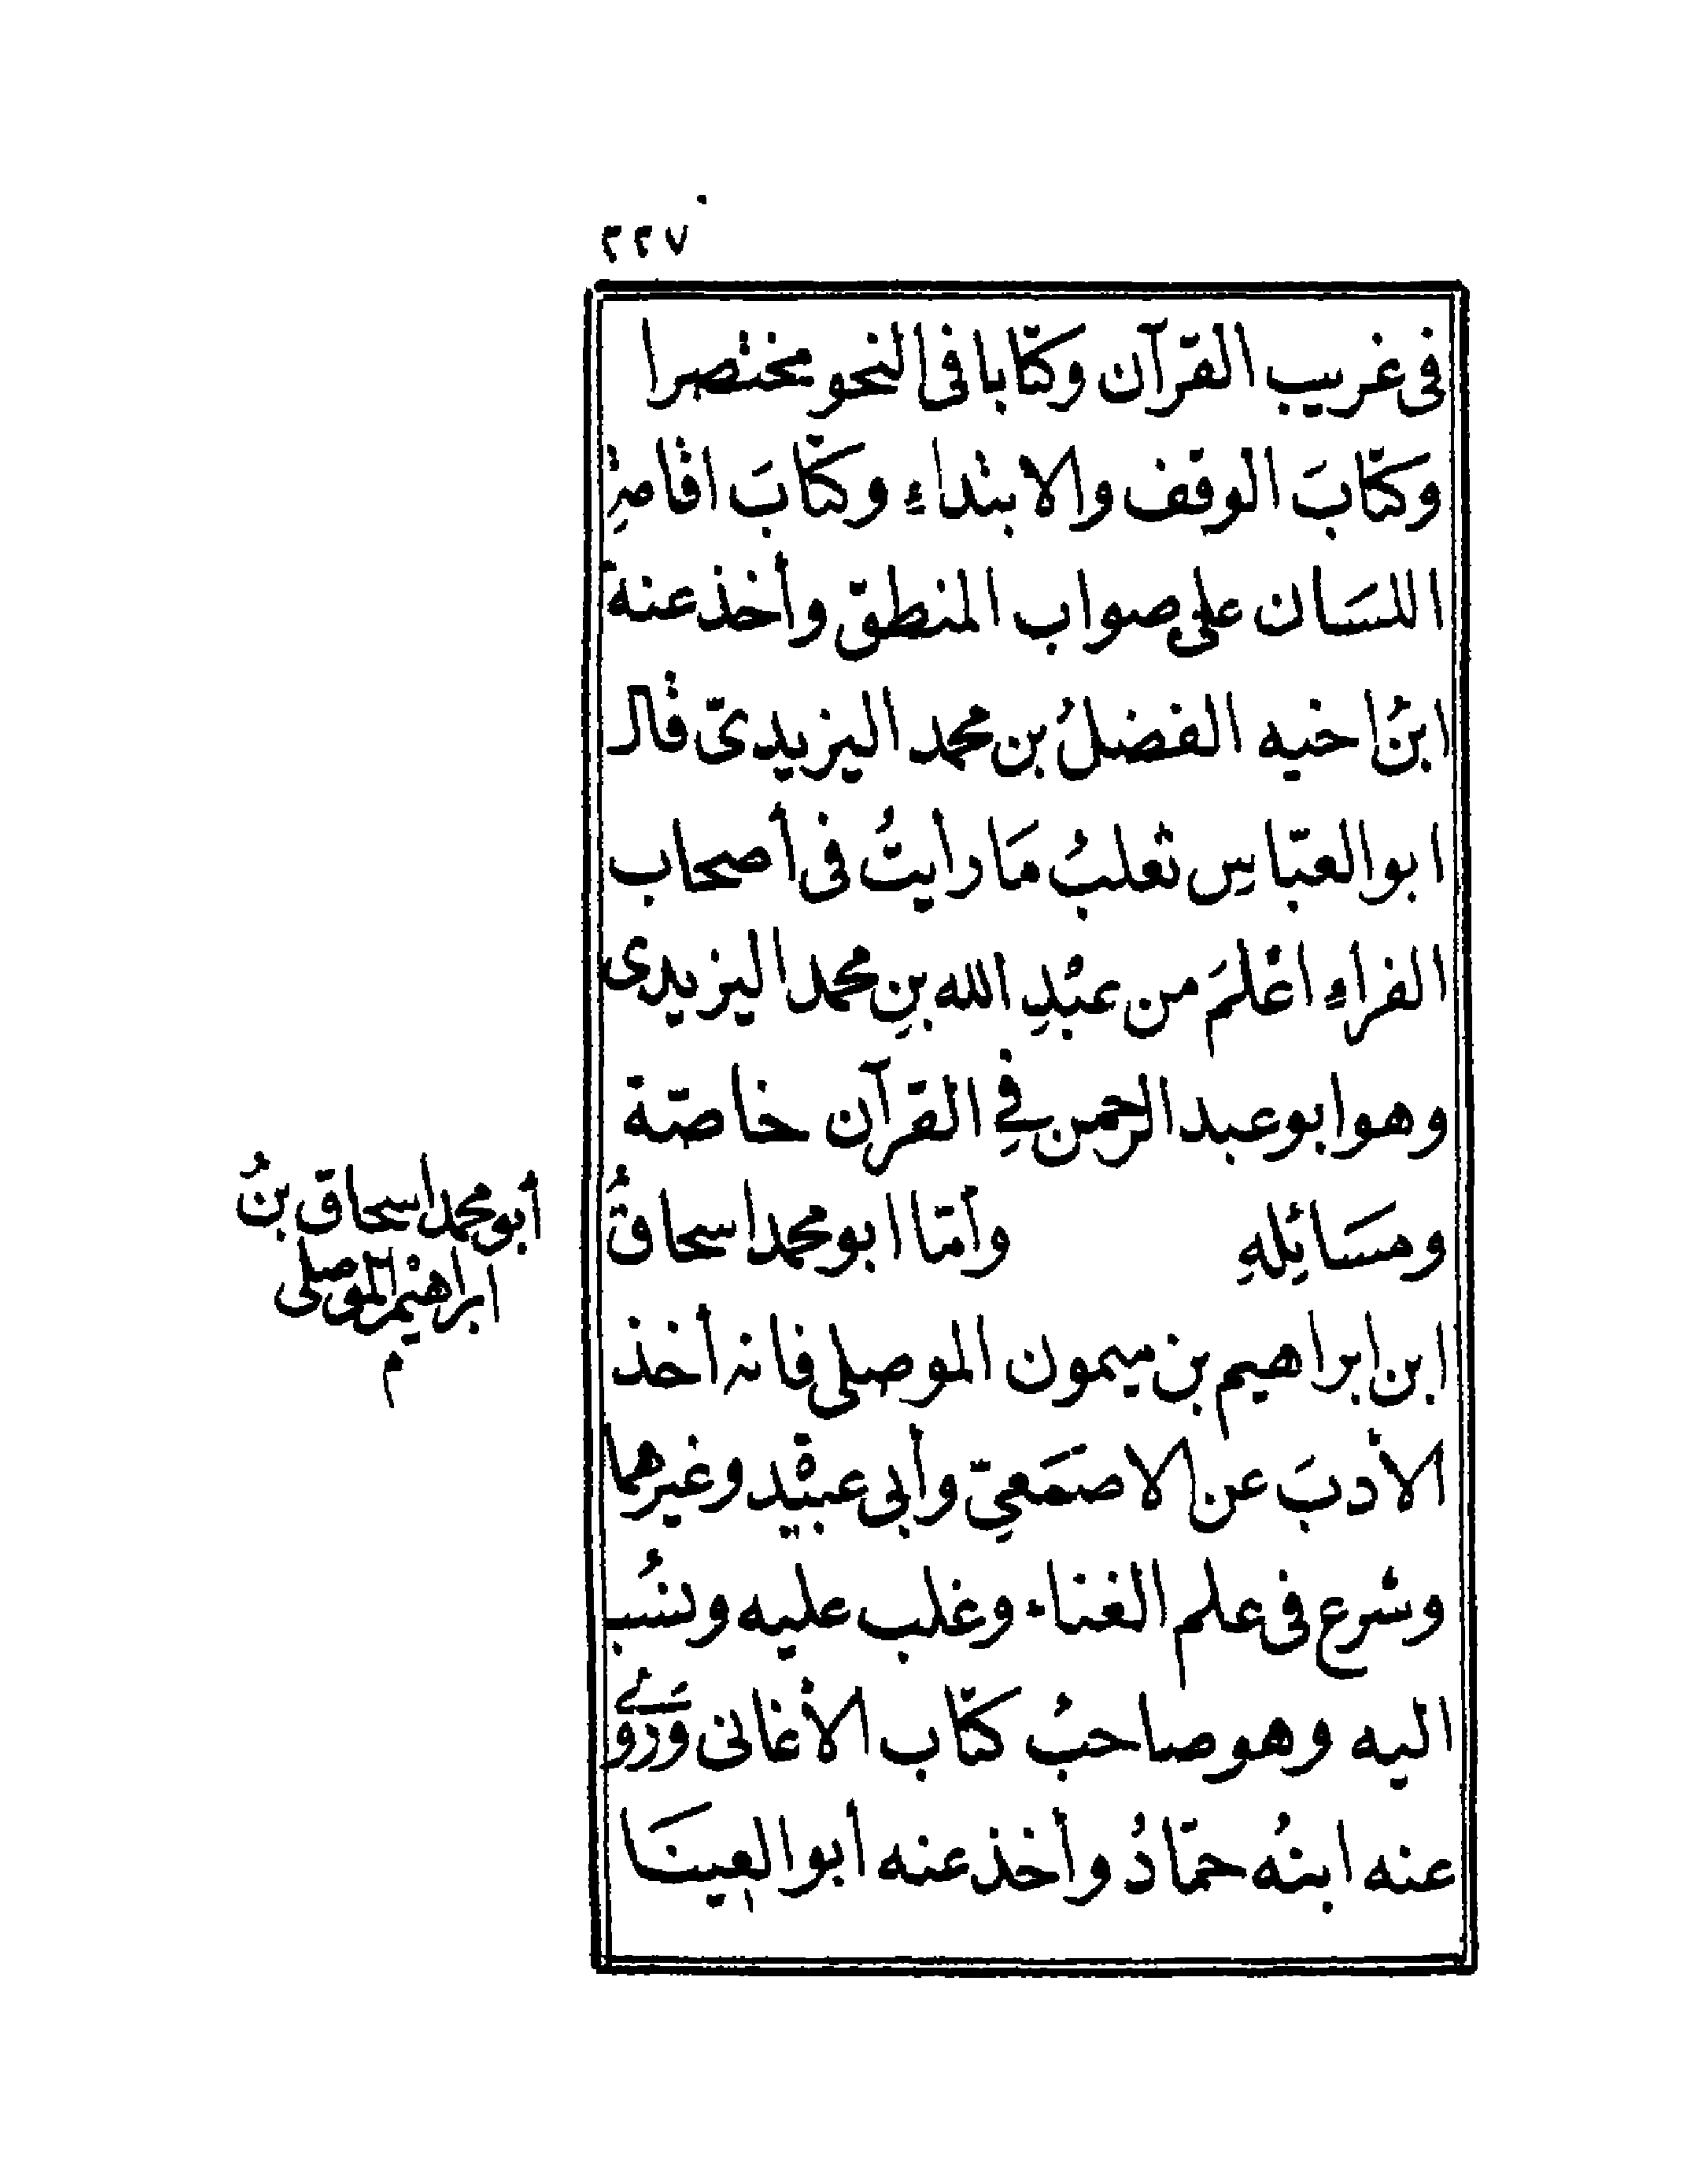 ٢٢٧
فى غريب القرآن وكتابا فى النحو مختصرا
وكتابَ الوقف والابتداءِ وكتابَ اقامةِ
اللسَان على صواب المنطق وأخذ عنه
ابنُ اخيه الفضلُ بن محمد اليزيدىّ قال
ابو العبّاسِ ثعلبُ مَا رأيتُ فى أصحاب
الفراءِ اعْلمَ من عبْدِ الله بنِ محمد اليزيدى
وهو ابو عبد الرحمن فِي القرآن خاصّة
ومسَائِلهِ وأمّا ابو محمد اسحاقُ
أبو محمد اسحاق بنُ
ابراهيْم الموصلى
م
ابن ابراهيم بن ميمون الموصلى فانه أخذ
الأدبَ عن الاصمَعِيّ وأبى عبيْد وغيرهما
وشرع فى علم الغناء وغلب عليه ونسُب
اليه وهو صاحبُ كتاب الأغانى وَرَوىٰ
عنه ابنُه حمّادُ وأخذ عنه أبو العينَا